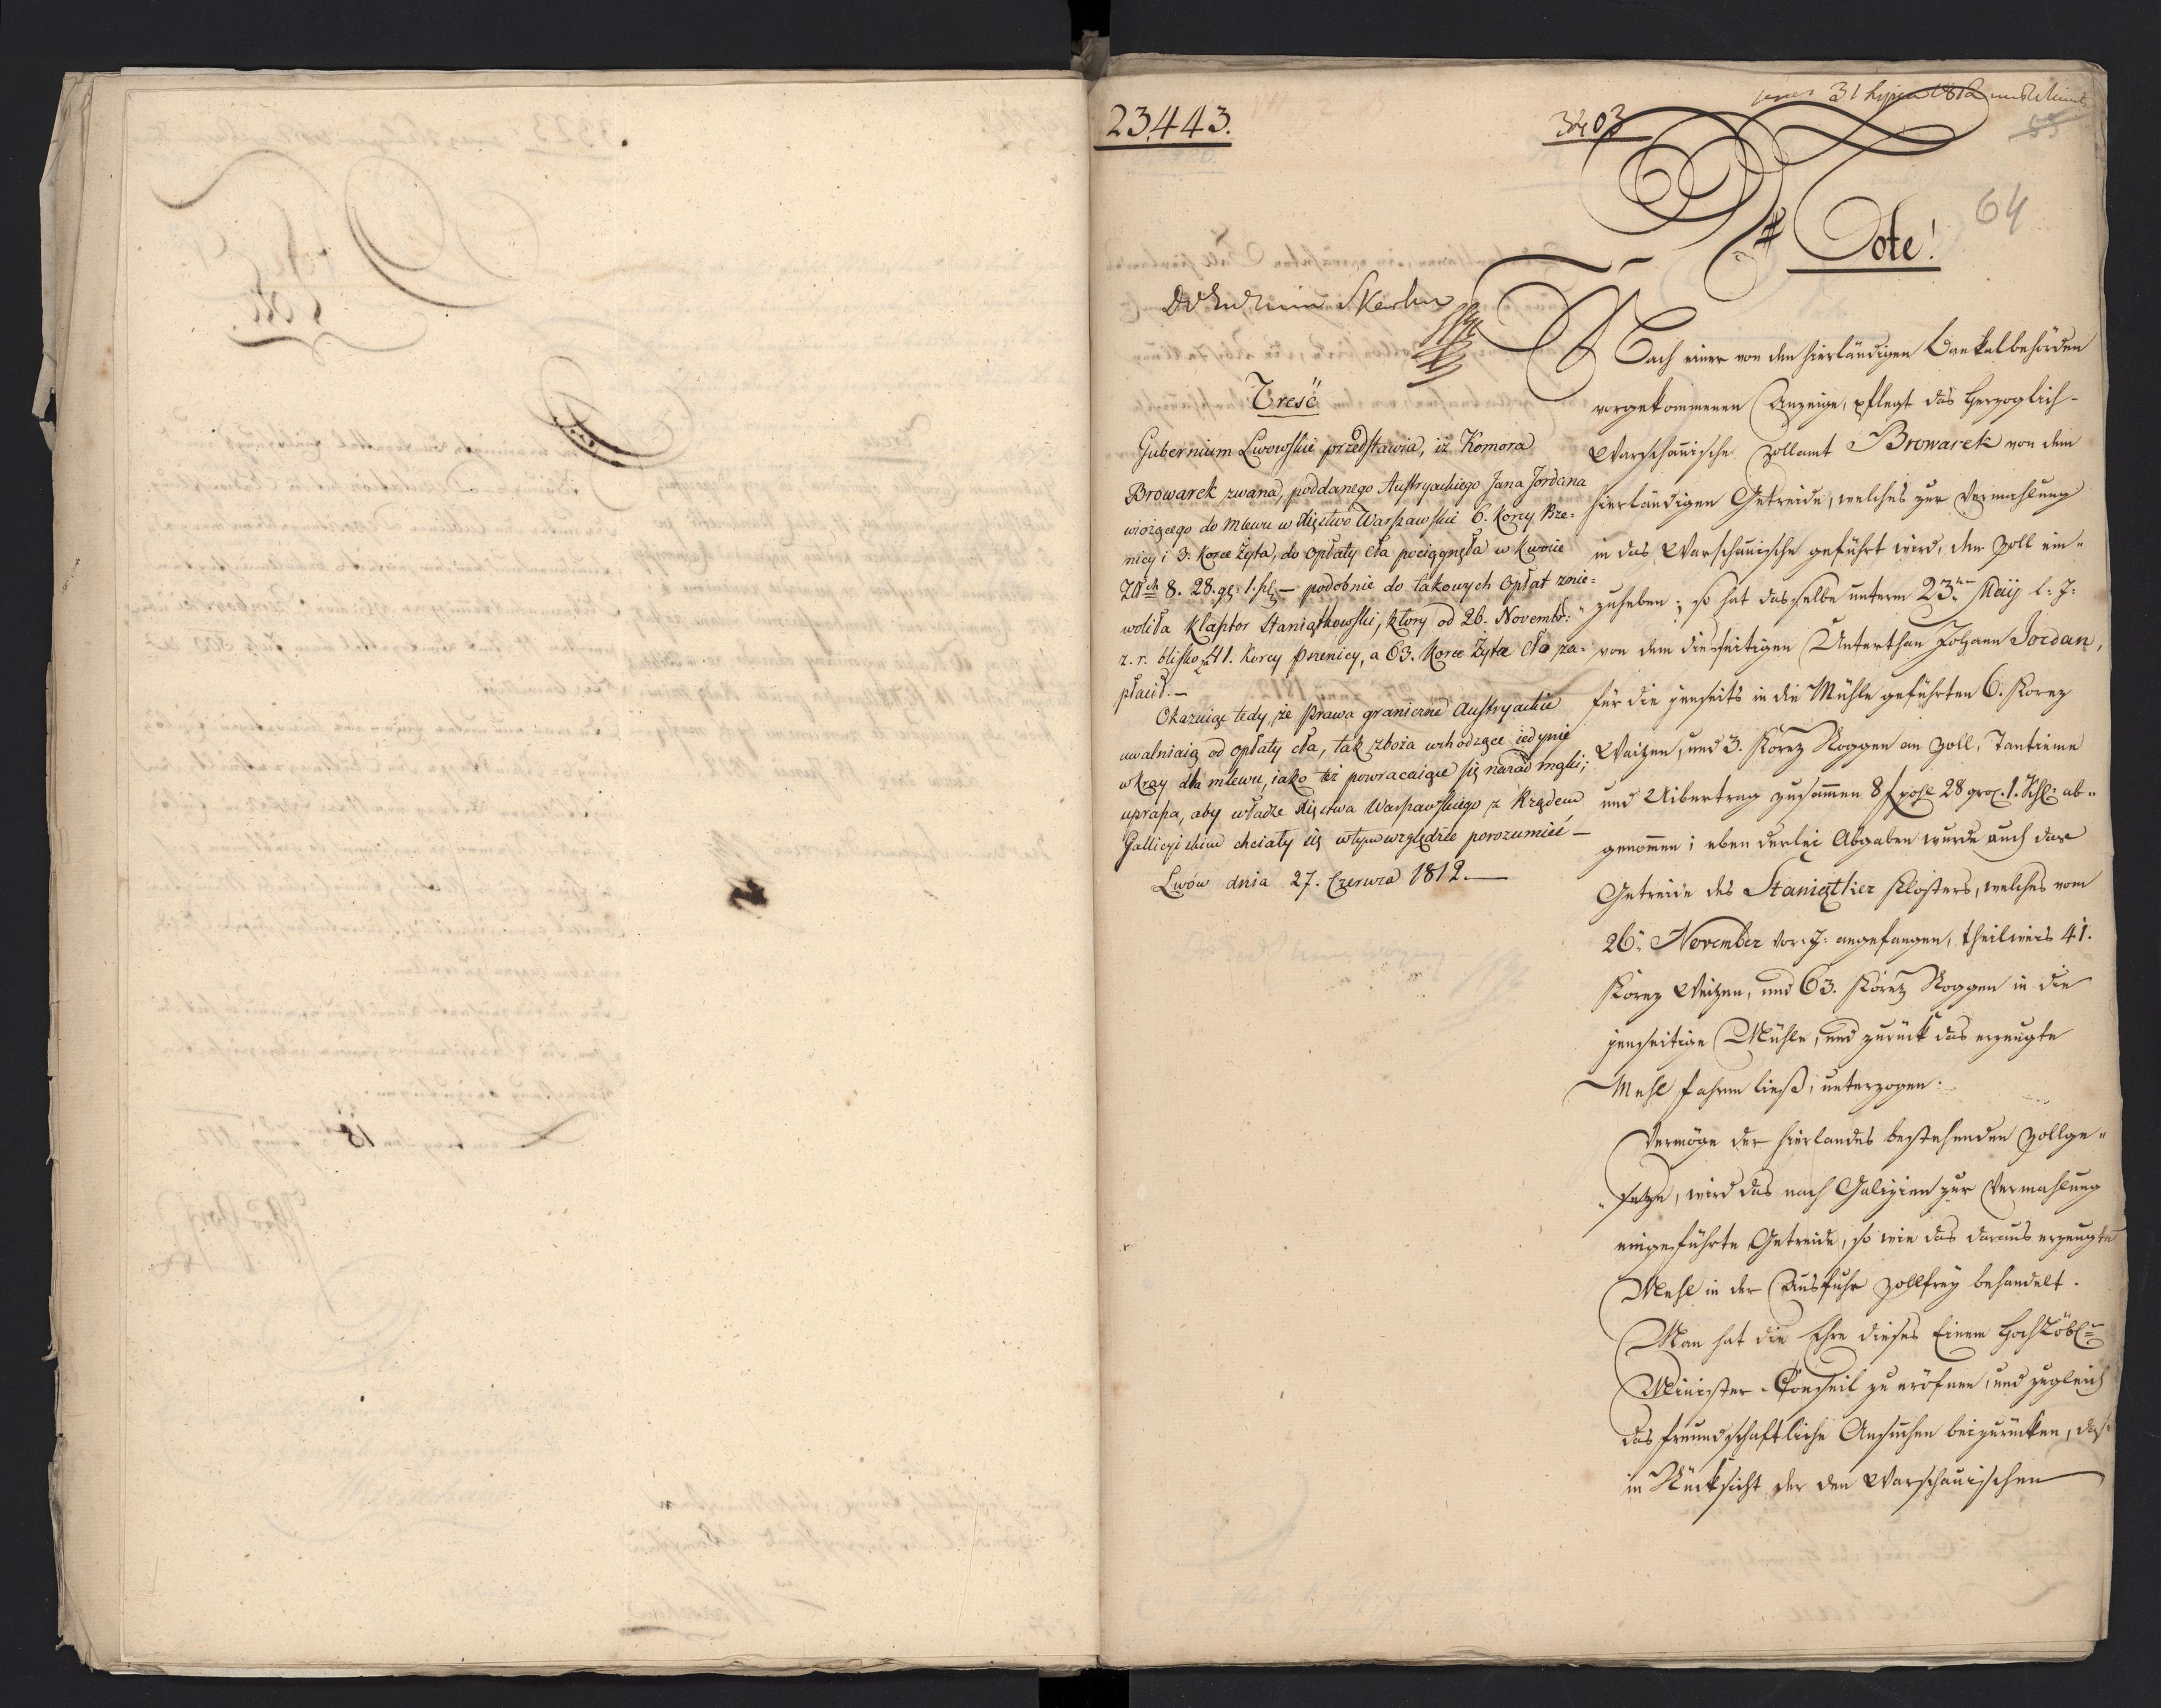 23443.
3403
31 Lipca 1812
55
64
Note!
Treść
Gubernium Lwowskie przedstawia, iż Komora
Browarek zwana, poddanego Austryackiego Jana Jordana
wiozącego do mlewu w Xięstwo Warszawskie 6. Korcy Psze-
nicy i 3. Korce Żyta, do opłaty cła pociągnęła w kwocie
Złłch 8. 28. gr. 1. szl. — podobnie do takowych Opłat znie-
woliła Klasztor Staniątkowski, ktory od 26. Novembr:
z. r. blisko 41. Korcy Pszenicy, a 63. Korce Żyta cło za-
płacił. —
Okazuiąc tedy, że Prawa graniczne Austryackie
uwalniaią od opłaty cła, tak zboża wchodzące iedynie
w kray dla mlewu, iako też powracaiące się nazad mąki;
uprasza, aby władze Xięstwa Warszawskiego z Rządem
Gallicyiskim chciały się wtym względzie porozumieć —
Lwów dnia 27. Czerwca 1812. —
Nach einer von den hierländigen Bankalbehörden
vorgekommenen Anzeige, pflegt das Herzoglich-
Warschauische Zollamt Browarek von dem
hierländigen Getreide, welches zur Vermahlung
in das Warschauische geführt wird, den Zoll ein-
zuheben; so hat dasselbe unterm 23ten May l: J:
von dem diesseitigen Unterthan Johann Jordan,
für die jenseits in die Mühle geführten 6. Korez
Waitzen, und 3. Korez Roggen an Zoll, Tantieme
und Uibertrag zusammen 8 f pohl 28 gros. 1. Schl: ab-
genommen; eben derlei Abgaben wurde auch das
Getreide des Staniątker Klosters, welches vom
26n November vor: J: angefangen, theilweis 41.
Korez Weitzen, und 63. Koretz Roggen in die
jenseitige Mühle, und zurück das erzeugte
Mehl fahren ließ, unterzogen.
Vermöge der hierlandes bestehenden Zollge-
setze, wird das nach Galizien zur Vermahlung
eingeführte Getreide, so wie das daraus erzeugte
Mehl in der Ausfuhr zollfrey behandelt.
Man hat die Ehre dieses Einem Hochlöbl:
Minister-Conseil zu eröfnen, und zugleich
das freundschaftliche Ansuchen beizurücken, daß
in Rücksicht der den Warschauischen